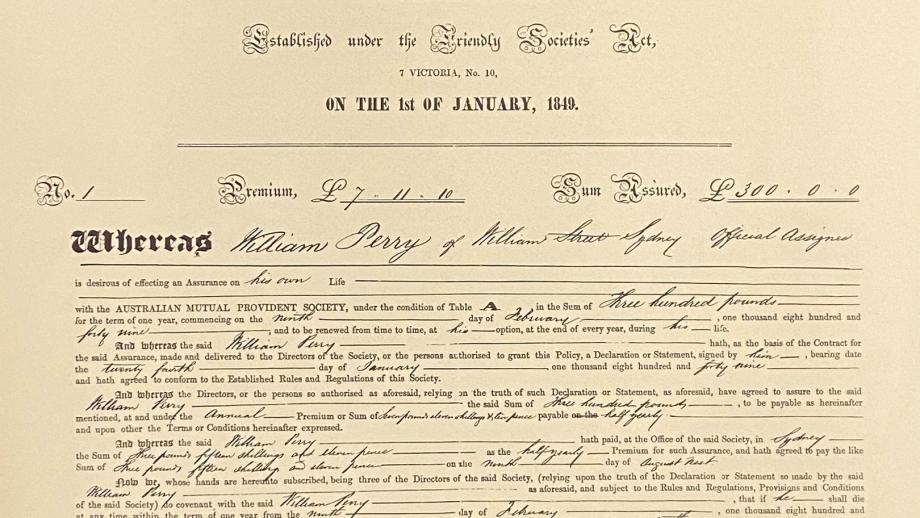 Established under the Friendly Societies' Act,
7 VICTORIA, No. 10,
ON THE 1st OF JANUARY, 1849.
No. 1 Premium, £7 . 11 . 10 Sum Assured, £300 . 0 . 0
Whereas William Perry of William Street Sydney Official Assignee
is desirous of effecting an Assurance on his own Life
with the AUSTRALIAN MUTUAL PROVIDENT SOCIETY, under the condition of Table A, in the Sum of Three hundred pounds
for the term of one year, commencing on the ninth day of February, one thousand eight hundred and
forty nine, and to be renewed from time to time, at his option, at the end of every year, during his life.
And whereas the said William Perry hath, as the basis of the Contract for
the said Assurance, made and delivered to the Directors of the Society, or the persons authorised to grant this Policy, a Declaration or Statement, signed by him, bearing date
the twenty fourth day of January, one thousand eight hundred and forty nine
and hath agreed to conform to the Established Rules and Regulations of this Society.
And whereas the Directors, or the persons so authorised as aforesaid, relying on the truth of such Declaration or Statement, as aforesaid, have agreed to assure to the said
William Perry the said Sum of Three hundred pounds, to be payable as hereinafter
mentioned, at and under the Annual Premium or Sum of Seven pounds eleven shillings & ten pence payable on the half yearly
and upon other the Terms or Conditions hereinafter expressed.
And whereas the said William Perry hath paid, at the Office of the said Society, in Sydney
the Sum of Three pounds fifteen shillings and eleven pence as the half yearly Premium for such Assurance, and hath agreed to pay the like
Sum of Three pounds fifteen shillings and eleven pence on the ninth day of August next
Now we, whose hands are hereunto subscribed, being three of the Directors of the said Society, (relying upon the truth of the Declaration or Statement so made by the said
William Perry as aforesaid, and subject to the Rules and Regulations, Provisions and Conditions
of the said Society) so covenant with the said William Perry, that if he shall die
at any time within the term of one year from the ninth day of February